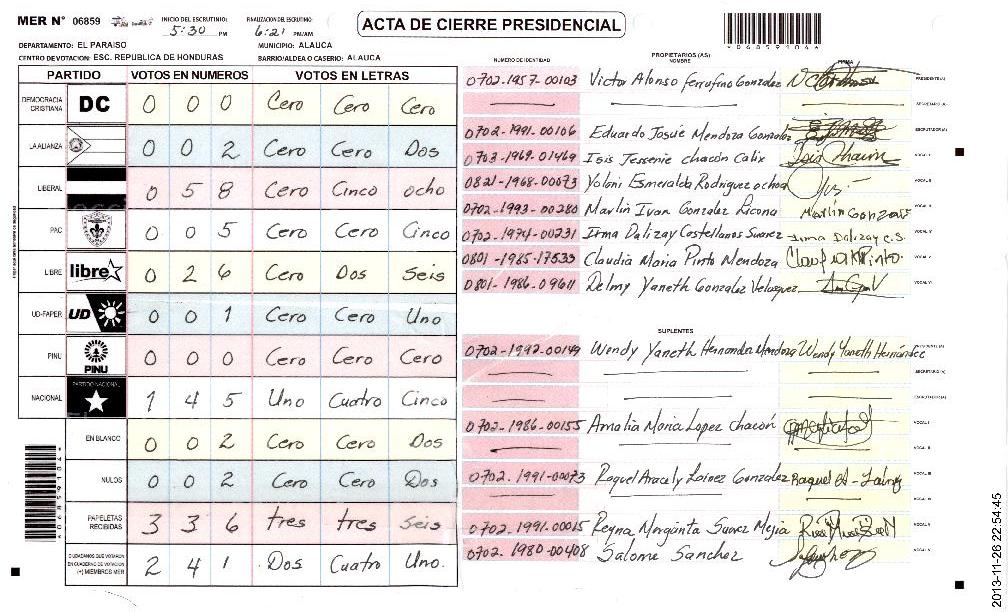 MER N° 06859
INICIO DEL ESCRUTINIO: 5:30 PM
FINALIZACION DEL ESCRUTINIO: 6:21 PM/AM
ACTA DE CIERRE PRESIDENCIAL
DEPARTAMENTO: EL PARAISO
MUNICIPIO: ALAUCA
CENTRO DE VOTACION: ESC. REPUBLICA DE HONDURAS
BARRIO/ALDEA O CASERIO: ALAUCA
PARTIDO VOTOS EN NUMEROS VOTOS EN LETRAS
DEMOCRACIA CRISTIANA DC 0 0 0 Cero Cero Cero
LA ALIANZA 0 0 2 Cero Cero Dos
LIBERAL 0 5 8 Cero Cinco ocho
PAC 0 0 5 Cero Cero Cinco
LIBRE libre 0 2 6 Cero Dos Seis
UD-FAPER UD 0 0 1 Cero Cero Uno
PINU PINU 0 0 0 Cero Cero Cero
NACIONAL PARTIDO NACIONAL 1 4 5 Uno Cuatro Cinco
EN BLANCO 0 0 2 Cero Cero Dos
NULOS 0 0 2 Cero Cero Dos
PAPELETAS RECIBIDAS 3 3 6 tres tres Seis
CIUDADANOS QUE VOTARON EN CUADERNO DE VOTACION (+) MIEMBROS MER 2 4 1 Dos Cuatro Uno.
NUMERO DE IDENTIDAD PROPIETARIOS (AS) NOMBRE FIRMA
0702-1957-00103 Victor Alonso Ferrufino Gonzalez PRESIDENTE(A)
SECRETARIO (A)
0702-1991-00106 Eduardo Josue Mendoza Gonzalez ESCRUTADOR(A)
0703-1969-01469 Isis Jessenie chacón Calix Isis Chacon VOCAL I
0821-1968-00073 Yoloni Esmeralda Rodriguez ochoa VOCAL II
0702-1993-00280 Marlin Ivan Gonzalez Licona Marlin Gonzalez VOCAL III
0702-1974-00231 Irma Dalizay Castellanos Suarez Irma Dalizay C.S. VOCAL IV
0801-1985-17533 Claudia Maria Pinto Mendoza Claudia M Pinto. VOCAL V
0801-1986-09611 Delmy Yaneth Gonzalez Velasquez VOCAL VI
SUPLENTES
0702-1992-00149 Wendy Yaneth Hernandez Mendoza Wendy Yaneth Hernández PRESIDENTE (A)
SECRETARIO (A)
ESCRUTADOR (A)
0702-1986-00155 Amalia Maria Lopez chacón VOCAL I
VOCAL II
0702-1991-00073 Raquel Aracely Lainez Gonzalez VOCAL III
0702-1991-00015 Reyna Margarita Suarez Mejia VOCAL V
0702-1980-00408 Salome Sanchez
2013-11-26 22:54:45